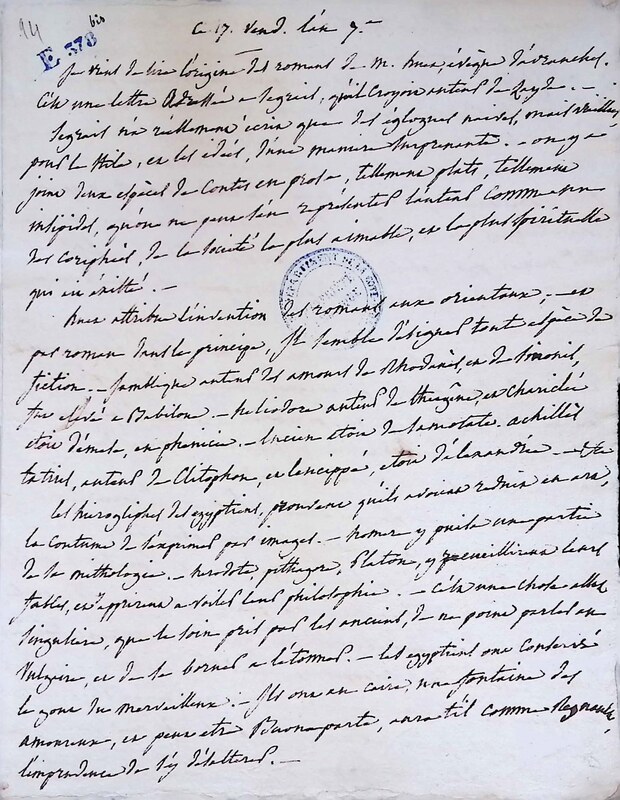 94
bis
E 378
Ce 17. Vend. l'an 7.e
Je viens de lire l'origine des romans de M. huet, évêque d'avranches.
C'est une lettre adressée a Segrais, qu'il croyoit auteur de Zayde. —
Segrais n'a réellement écrit que des églogues naives, mais
pour le stile, et les idées, d'une maniere surprenante. — on y a
joint deux espèces de Contes en prose, tellement plats, tellement
insipides, qu'on ne peut s'en représenter l'auteur comme un
des coriphées, de la société la plus aimable, et la plus spirituelle
qui ait existé. —
huet attribue l'invention des romans aux orientaux, — et
par roman dans le principe, il semble désigner toute espèce de
fiction. — Jamblique auteur des amours de Rhodanès, et de Sinonis,
fut elevé a Babilone. — heliodore auteur de theagène et Chariclée
étoit d'émese, en phenicie. — Lucien etoit de Samosate. achillès
tatius, auteur de Clitophon, et Leucippé, etoit d'alexandrie. —
les hieroglifes des egyptiens, prouvent qu'ils avoient réduit en art,
la coutume de s'exprimer par images. — homere y puisa une partie
de sa mithologie. — herodote, pithagore, Platon, y recueillirent leurs
fables, et apprirent a voiler leur philosophie. — C'est une chose assez
singuliere, que le soin pris par les anciens, de ne point parler au
Vulgaire, et de se borner a l'étonner. — les egyptiens ont conservé
le gout du merveilleux. — Ils ont au Caire, une fontaine des
amoureux, et peut etre Buonaparte, aura t'il comme
l'imprudence de s'y désalterer. —